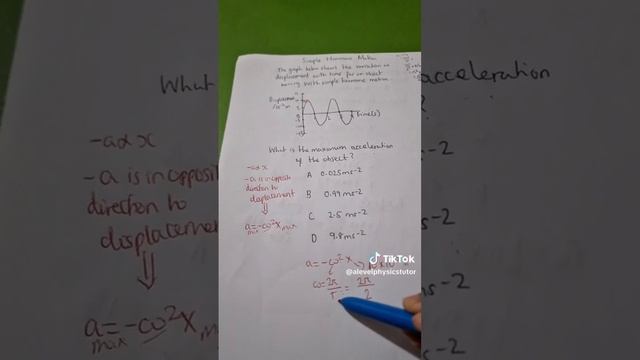 Simple Harmonic Motion
The graph below shows the variation in
displacement with time for an object
moving with simple harmonic motion
Displacement
/10⁻² m
time(s)
What is the maximum acceleration
of the object?
-a∝x
-a is in opposite
direction to
displacement
⇓
a=-ω²x
max max
A 0.025ms-2
B 0.99ms-2
C 2.5ms-2
D 9.8ms-2
a=-ω²x
ω=2π = 2π
T 2
TikTok
@alevelphysicstutor
What
-a∝x
-a is in opposit
direction to
displacement
⇓
a=-ω²x
max
acceleration
ms-2